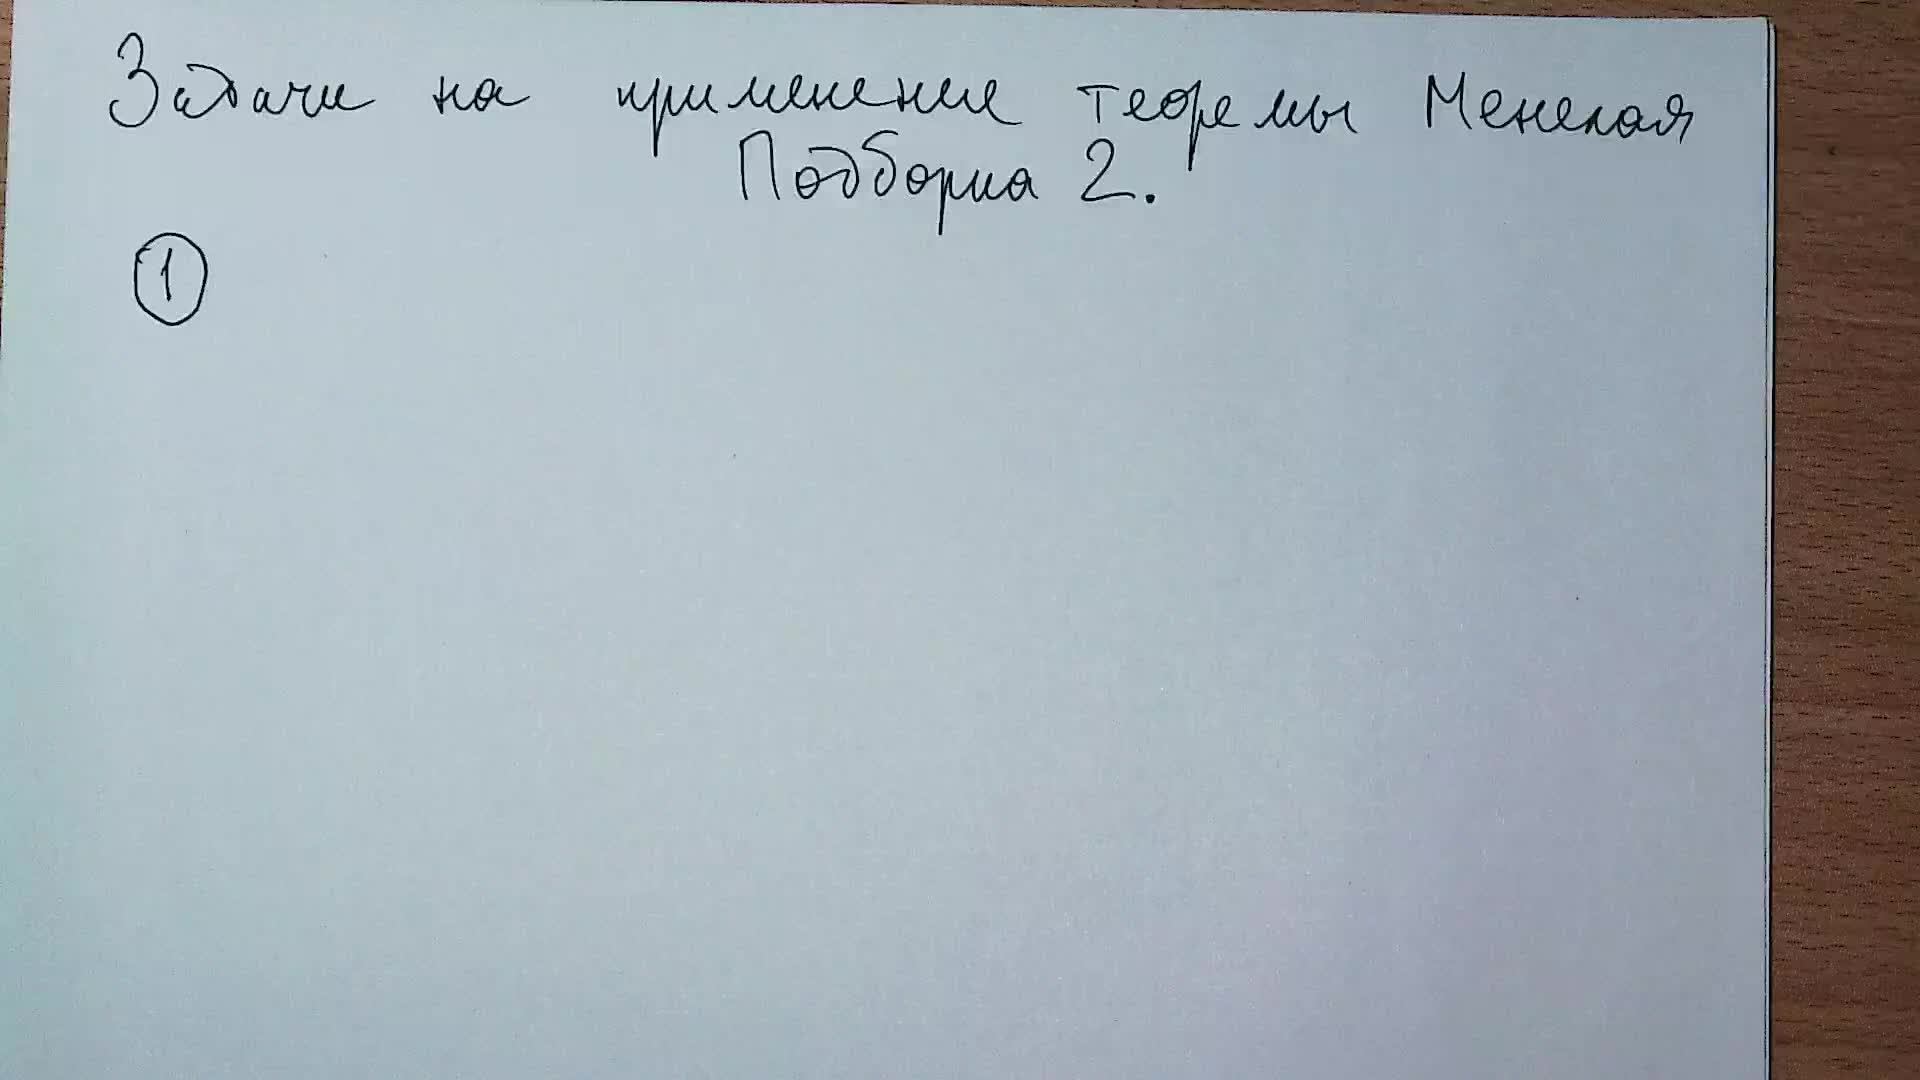 Задачи на применение теоремы Менелая
Подборка 2.
1